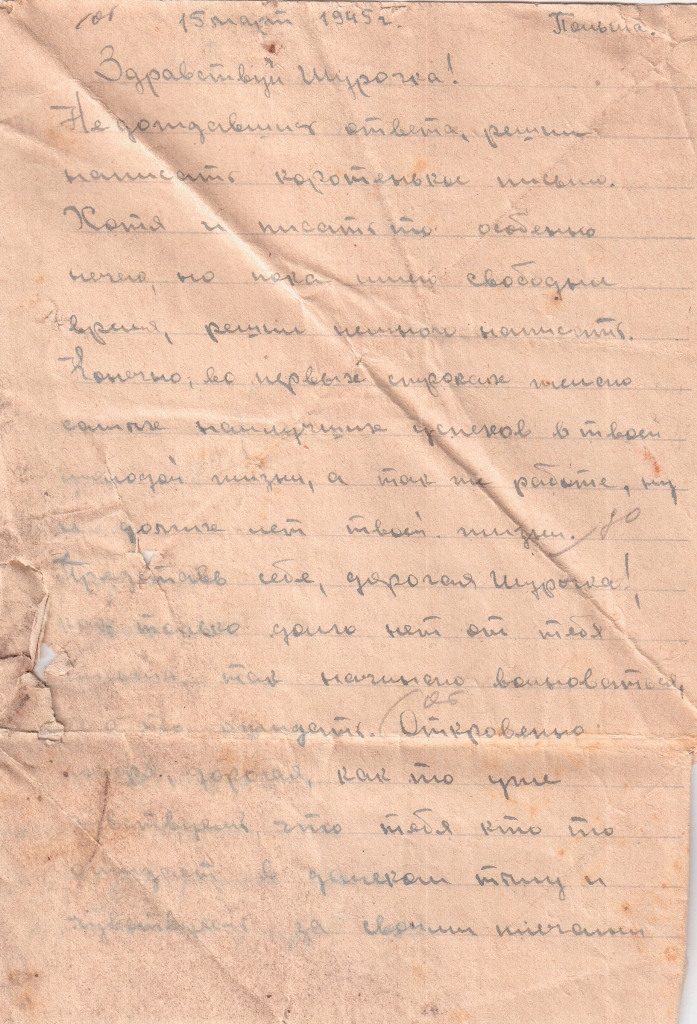 об 15 март 1945 г. Польша.
Здравствуй Шурочка!
Не дождавшись ответа, решил
написать коротенькое письмо.
Хотя и писать то особенно
нечего, но пока имею свободный
время, решил немного написать.
Конечно, во первых строках желаю
самых наилучших успехов в твоей
молодой жизни, а так же работе, ну
и долгих лет твоей жизни. до
Представь себе, дорогая Шурочка!,
как только долго нет от тебя
письма, так начинаю волноваться,
ожидать. об Откровенно
дорогая, как то уже
чувствуешь что тебя кто то
ожидает в далеком тылу и
чувствуешь за своими плечами